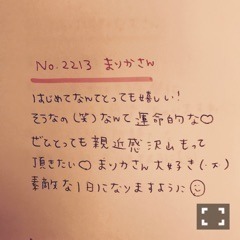 No.2213 まりかさん
はじめてなんてとっても嬉しい！
そうなの(笑)なんて運命的な♡
ぜひとっても親近感沢山もって
頂きたい♡まりかさん大好き(・×)
素敵な1日になりますように☺